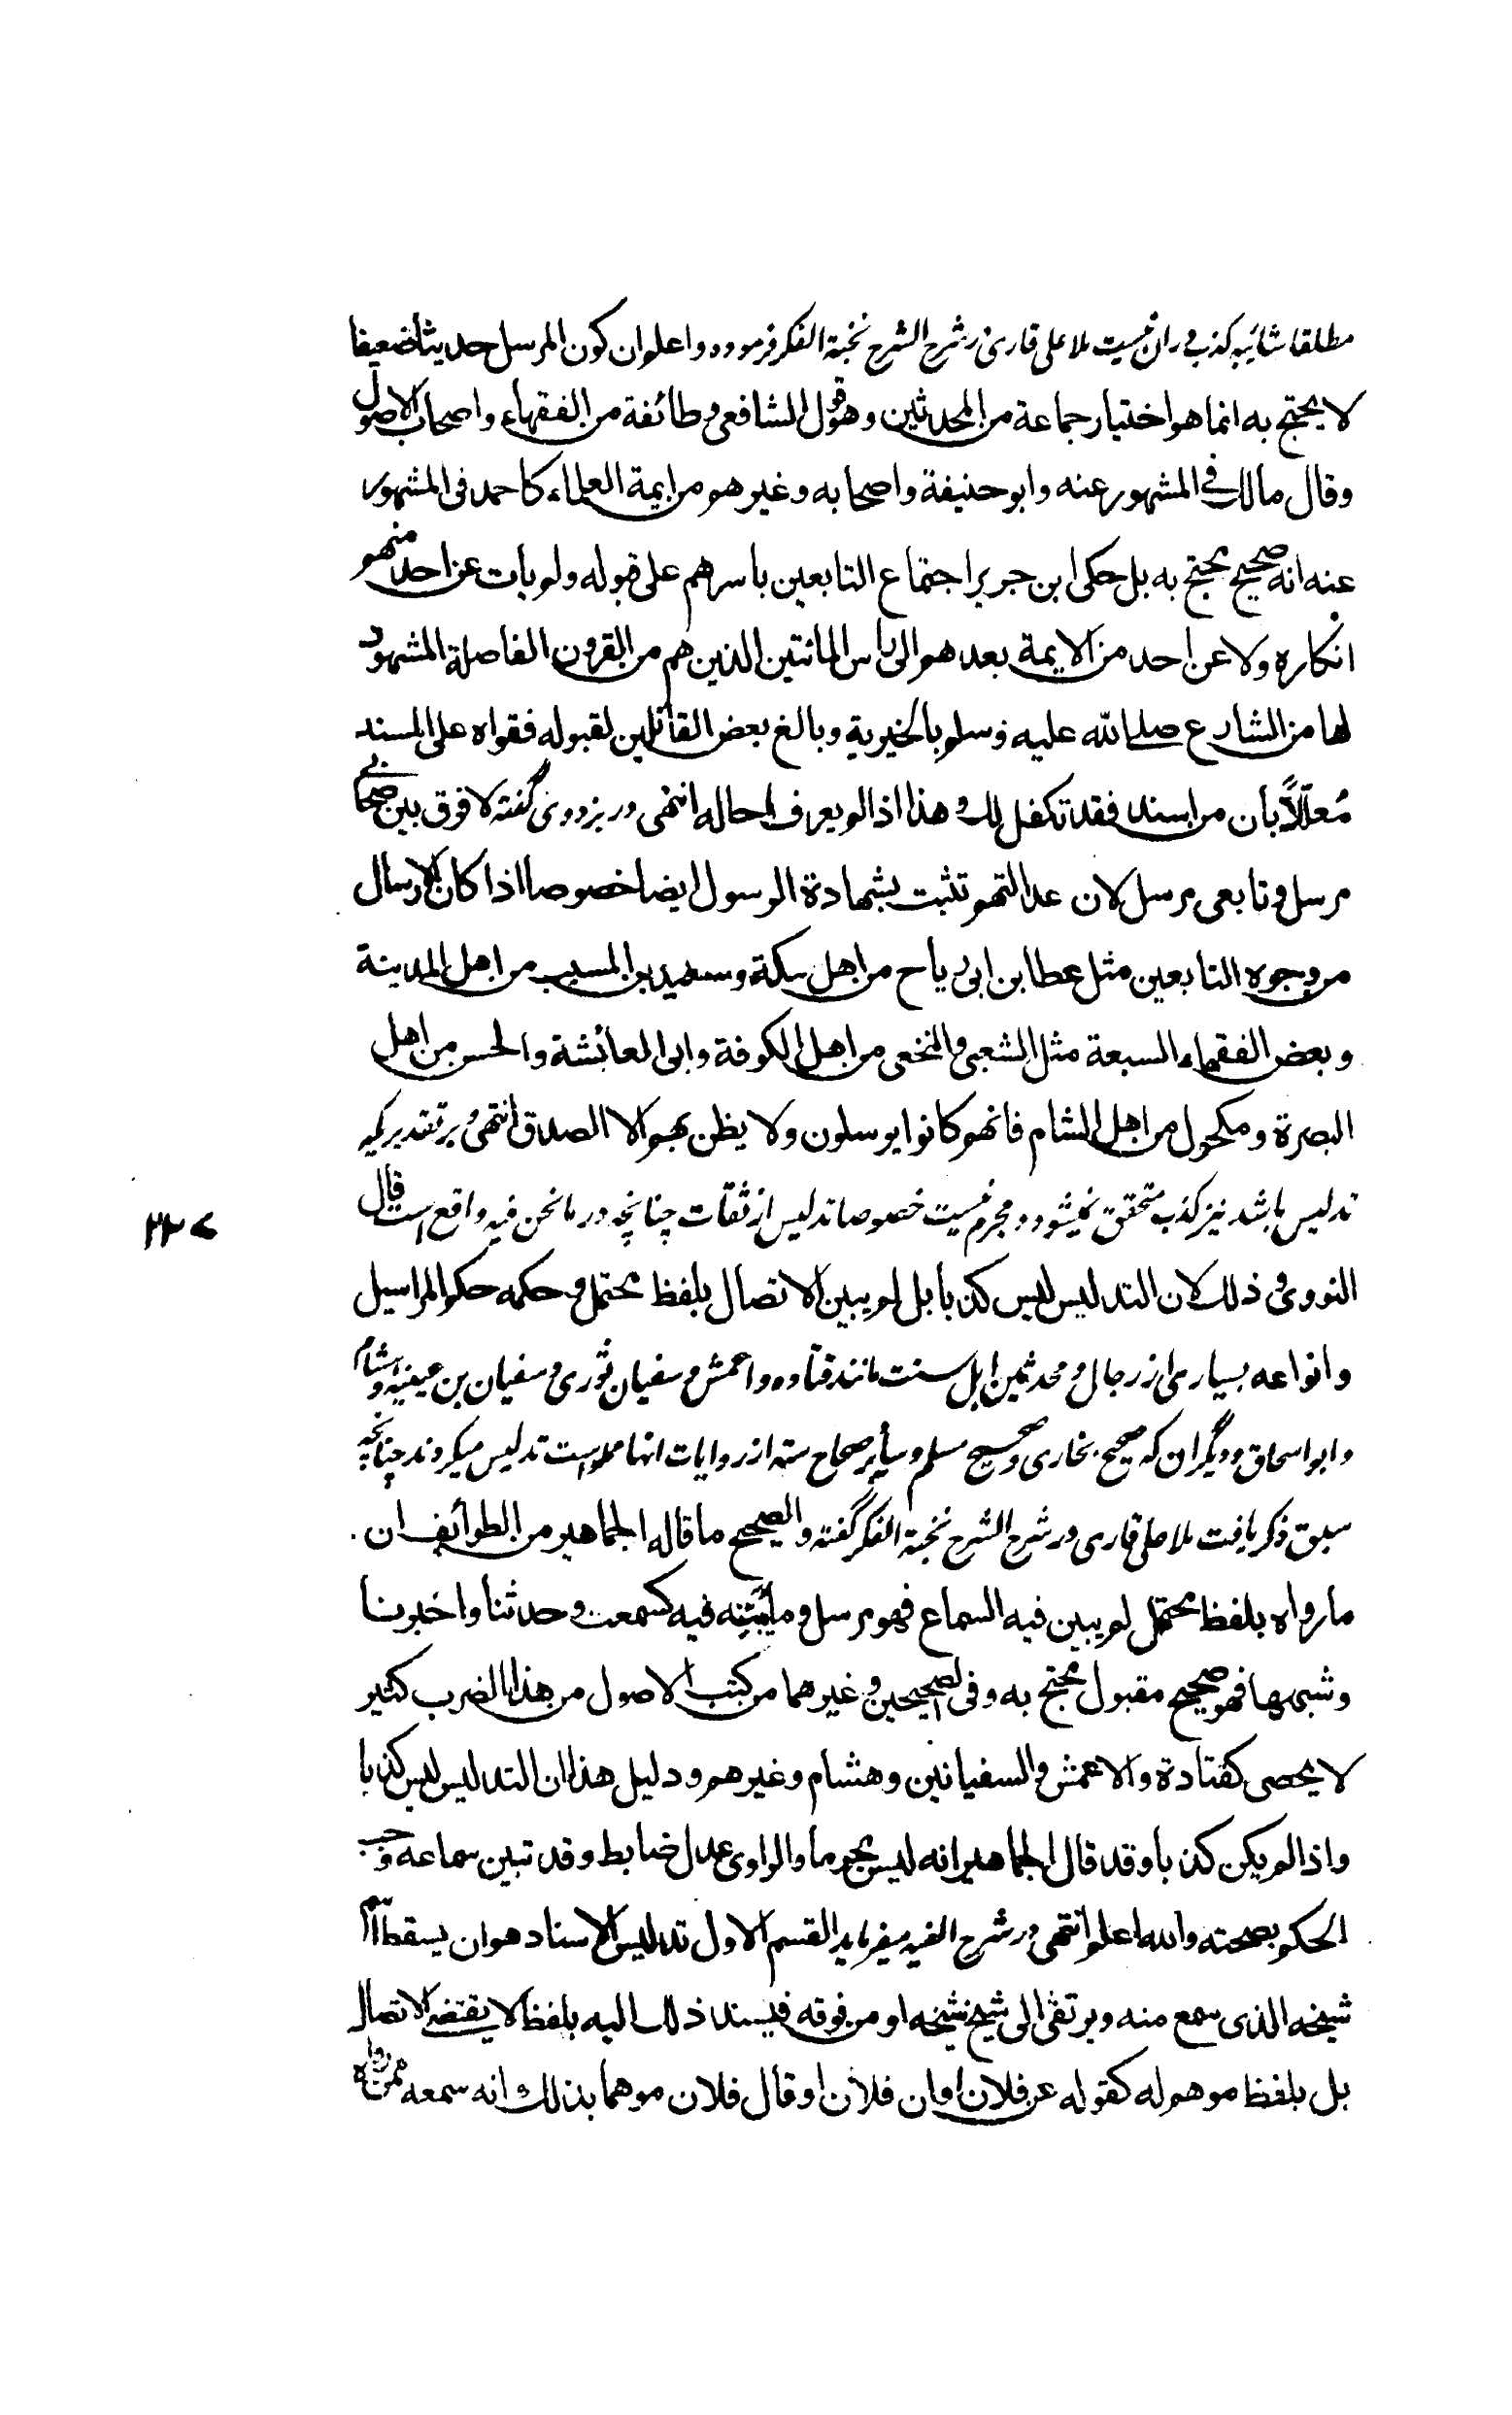 مطلقا شائبه کذب در ان نیست ملا علی قاری در شرح الشرح نخبة الفکر فرموده واعلم ان کون المرسل حدیثا ضعیفا
لا یحتج به انما هو اختیار جماعة من المحدثین وهو قول الشافعی وطائفة من الفقهاء واصحاب الاصول
وقال مالك فی المشهور عنه وابو حنیفة واصحابه وغیرهم من ایمة العلماء کاحمد فی المشهور
عنه انه صحیح یحتج به بل حکی ابن جریر اجتماع التابعین باسرهم علی قبوله ولم یات عن احد منهم
انکاره ولا عن احد من الایمة بعدهم الی راس المائتین الذین هم من القرون الفاصلة المشهود
لها من الشارع صلی الله علیه وسلم بالخیریة وبالغ بعض القائلین لقبوله فقواه علی المسند
مُعلّلاً بأن من اسند فقد تکفل لك وهذا اذا لم یعرف حاله انتهی ودر بزدوی گفته لا فرق بین صحابی
مرسل وتابعی مرسل لان عدالتهم تثبت بشهادة الرسول ایضا خصوصا اذا کان الارسال
من وجوه التابعین مثل عطا بن ابی ریاح من اهل مکة وسعید بن المسیب من اهل المدینة
وبعض الفقهاء السبعة مثل الشعبی والنخعی من اهل الکوفة وابی العائشة والحسن من اهل
البصرة ومکحول من اهل الشام فانهم کانوا یرسلون ولا یظن بهم الا الصدق انتهی وبر تقدیریکه
تدلیس باشد نیز کذب متحقق نمیشود ومحرم نیست خصوصا تدلیس از ثقات چنانچه در ما نحن فیه واقع است قال
۲۲۷
النووی فی ذلك لان التدلیس لیس کذبا بل لم یبین الاتصال بلفظ محتمل وحکمه حکم المراسیل
وانواعه بسیاری از رجال ومحدثین اهل سنت مانند قتاده واعمش وسفیان ثوری وسفیان بن عیینه وهشام
وابو اسحاق ودیگران که صحیح بخاری وصحیح مسلم وسایر صحاح سته از روایات انها مملو است تدلیس میکردند چنانچه
سبق ذکر یافت ملا علی قاری در شرح الشرح نخبة الفکر گفته والصحیح ما قاله الجماهیر من الطوائف ان
ما رواه بلفظ محتمل لم یبین فیه السماع فهو مرسل وما بیّنه فیه کسمعت وحدثنا واخبرنا
وشبهها فهو صحیح مقبول محتج به وفی الصحیحین وغیرهما من کتب الاصول من هذا الضرب کثیر
لا یحصی کقتادة والاعمش والسفیانین وهشام وغیرهم ودلیل هذا ان التدلیس لیس کذبا
واذا لم یکن کذبا وقد قال الجماهیر انه لیس بمحرم والراوی عدل ضابط وقد تبین سماعه وجب
الحکم بصحته والله اعلم انتهی ودر شرح الفیه میفرماید القسم الاول تدلیس الاسناد هو ان یسقط اسم
شیخه الذی سمع منه ویرتقی الی شیخ شیخه او من فوقه فیسند ذلك الیه بلفظ لا یقتضی الاتصال
بل بلفظ موهم له کقوله عن فلان او ان فلان او قال فلان موهما بذلك انه سمعه ممن رواه